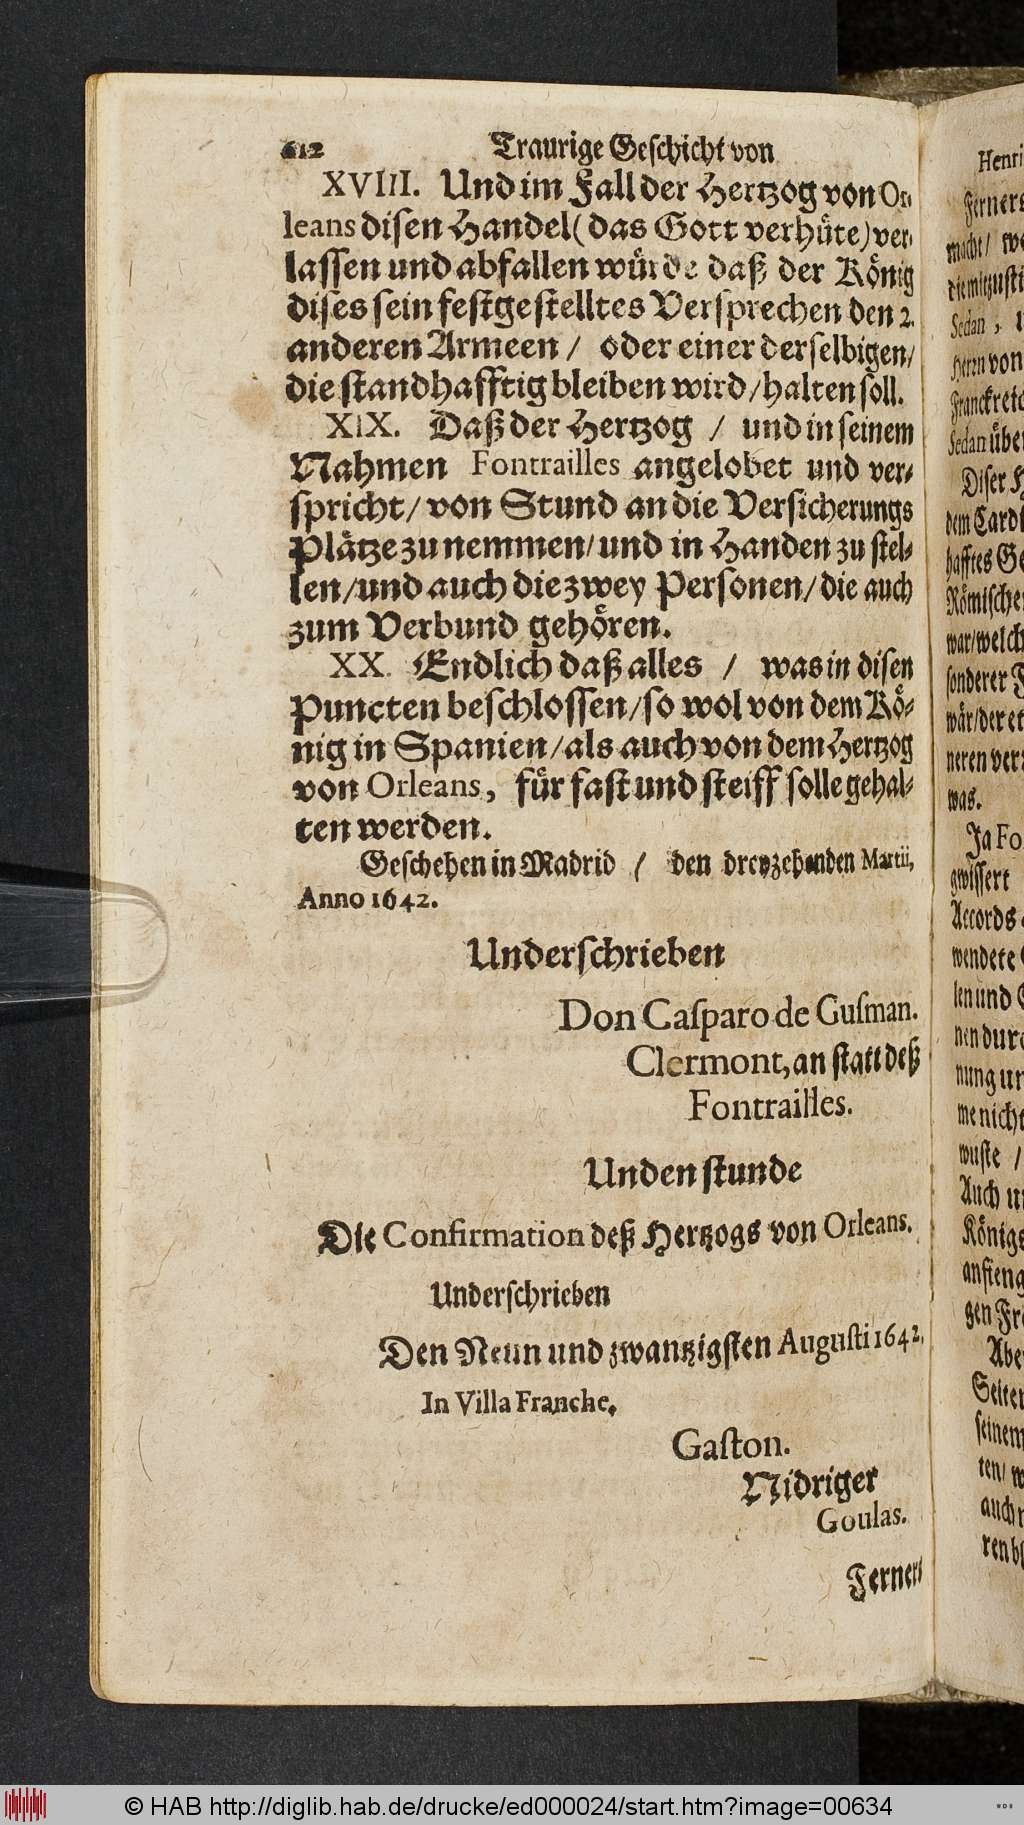 612 Traurige Geschicht von
XVIII. Und im Fall der Hertzog von Or-
leans disen Handel (das Gott verhüte) ver-
lassen und abfallen würde daß der König
dises sein festgestelltes Versprechen den 2.
anderen Armeen / oder einer derselbigen/
die standhafftig bleiben wird/halten soll.
XIX. Daß der Hertzog / und in seinem
Nahmen Fontrailles angelobet und ver-
spricht/ von Stund an die Versicherungs
Plätze zu nemmen/und in Handen zu stel-
len/und auch die zwey Personen/die auch
zum Verbund gehören.
XX. Endlich daß alles / was in disen
Puncten beschlossen/so wol von dem Kö-
nig in Spanien/als auch von dem Hertzog
von Orleans, für fast und steiff solle gehal-
ten werden.
Geschehen in Madrid / den dreyzehenden Martii,
Anno 1642.
Underschrieben
Don Casparo de Gusman.
Clermont, an statt deß
Fontrailles.
Unden stunde
Die Confirmation deß Hertzogs von Orleans.
Underschrieben
Den Neun und zwantzigsten Augusti 1642.
In Villa Franche.
Gaston.
Nidriger
Goulas.
Ferners
Henri
Ferners
macht/ we
die mitzusti
Sedan,
Herrn von
Franckreic
Sedan über
Diser H
dem Cardi
hafftes Ge
Römischen
war/welch
sonderer F
wär/der et
neren ver
was.
Ja Fo
gwissert
Accords
wendete
len und
nen durc
nung un
me nicht
wuste /
Auch u
Königs
anfieng
gen Fr
Aber
Seiten
seinem
ten/ w
auch
ren
© HAB http://diglib.hab.de/drucke/ed000024/start.htm?image=00634